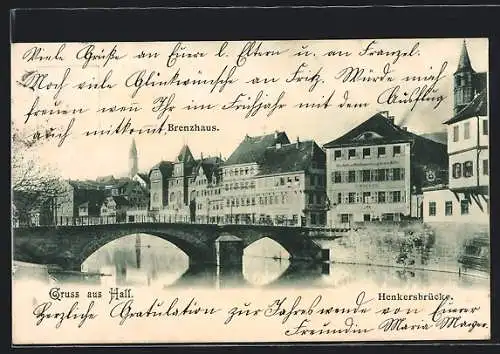 Viele Grüße an Euere l. Eltern u. an Franzel.
Noch viele Glückwünsche an Fritz. Würde mich
freuen wen Ihr im Frühjahr mit dem Ausflug
auch mitkomt
Brenzhaus.
Gruss aus Hall.
Henkersbrücke.
Herzliche Gratulation zur Jahreswende von Euerer
Freundin Maria Mayer.